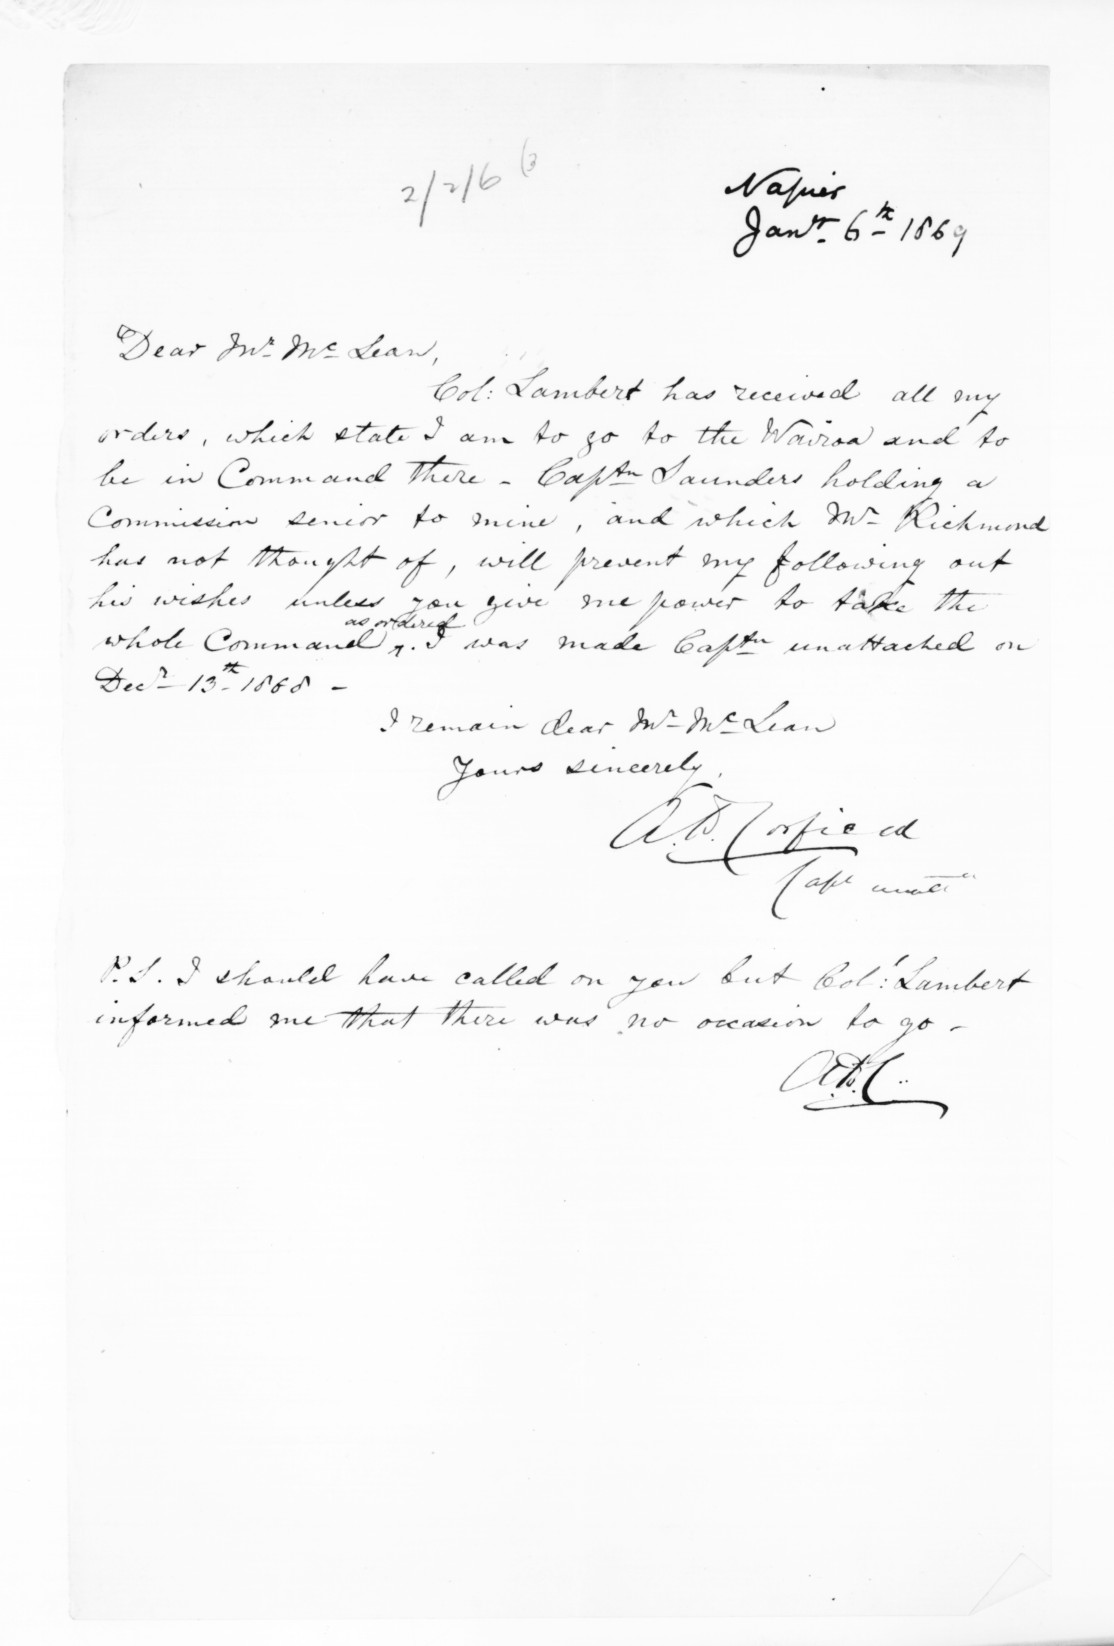 2/2/6 (3
Napier
Jany. 6th 1869
Dear Mr. Mc Lean,
Col: Lambert has received all my
orders, which state I am to go to the Wairoa and to
be in Command there - Captn Saunders holding a
Commission senior to mine, and which Mr Richmond
has not thought of, will prevent my following out
his wishes unless you give me power to take the
as ordered
whole Command. I was made Captn unattached on
Decr 13th 1868 -
I remain dear Mr Mc Lean
Yours sincerely,
A.B. Corfield
Capt unattd
P.S. I should have called on you but Col: Lambert
informed me that there was no occasion to go -
A.B.C.